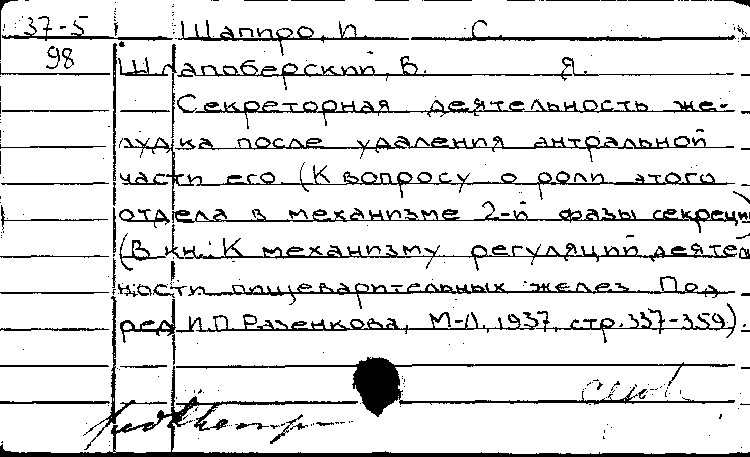 37-5 Шапиро, И. С.
98 Шлапоберский, В. Я.
Секреторная деятельность же-
лудка после удаления антральной
части его (К вопросу о роли этого
отдела в механизме 2-й фазы секреции)
(В кн.: К механизму регуляций деятель
ности пищеварительных желез. Под
ред. И.П. Разенкова, М-Л, 1937, стр. 337-359).